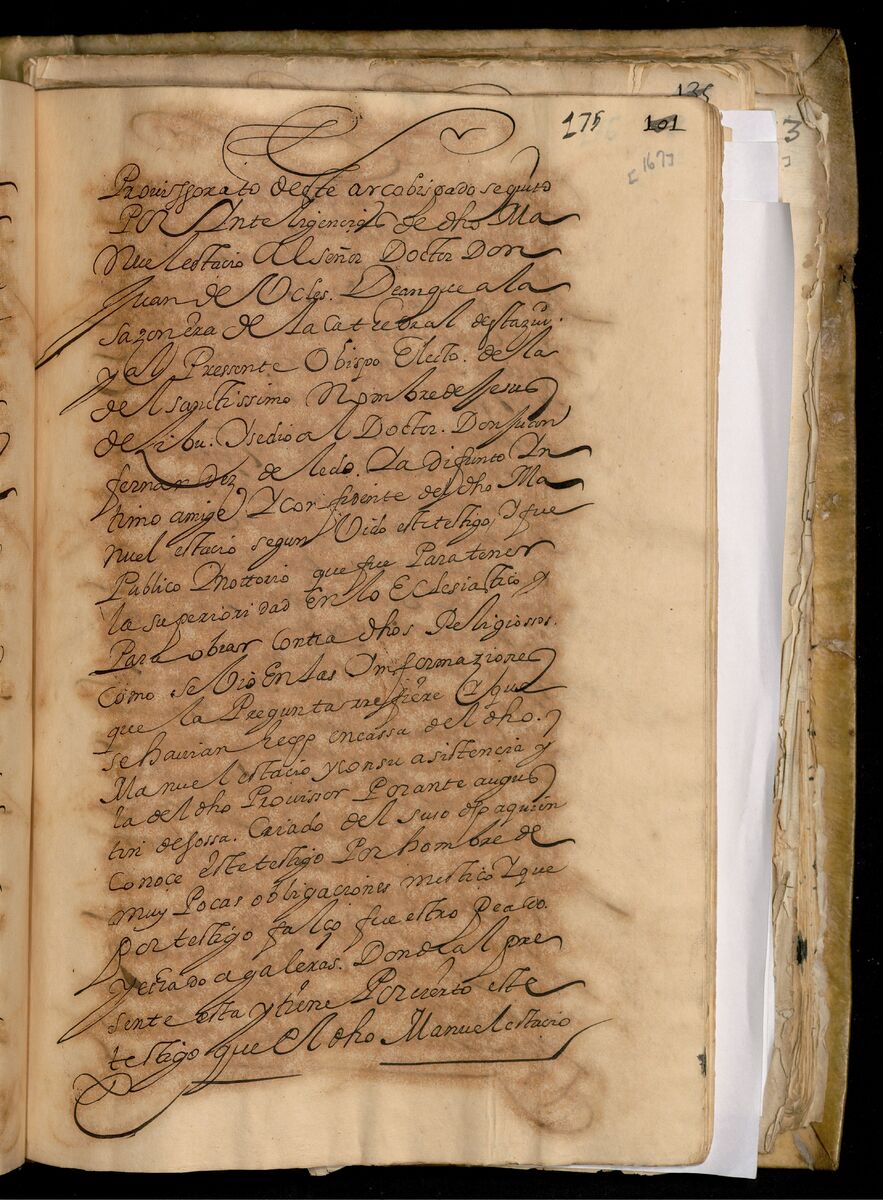 135
175 101
[167]
3
Provissorato deste arcobispado se quito
Por Ynteligencias de dho Ma
nuel estacio Al señor Doctor Don
Juan de Ucles. Dean que a la
sazon era de la Catredral desta
y al Pressente Obispo Electo. de la
del santissimo Nombre de Jesus
de sibu. Y se dio al Doctor. Don Juan
fernandez de ledo. Ya difunto Yn
timo amigo Y Confidente del dho Ma
nuel estacio segun Vido este testigo, Y fue
Publico Y nottorio que fue Para tener
la superioridad En lo Eclesiastico y
Para obrar Contra dhos Religiossos.
Como se Vio En las Ynformaziones
que la Pregunta rrefiere Y que
se havian en cassa del dho.
Manuel estacio y con su asistencia y
la del dho Provissor Por ante augus
tin de sossa. Criado del suso dho a quien
Conoce este testigo Por hombre de
muy Pocas obligaciones mestico Y que
Por testigo falço fue
y echado a galeras. Donde al pre
sente esta y tiene Por cierto este
testigo que El dho Manuel estacio